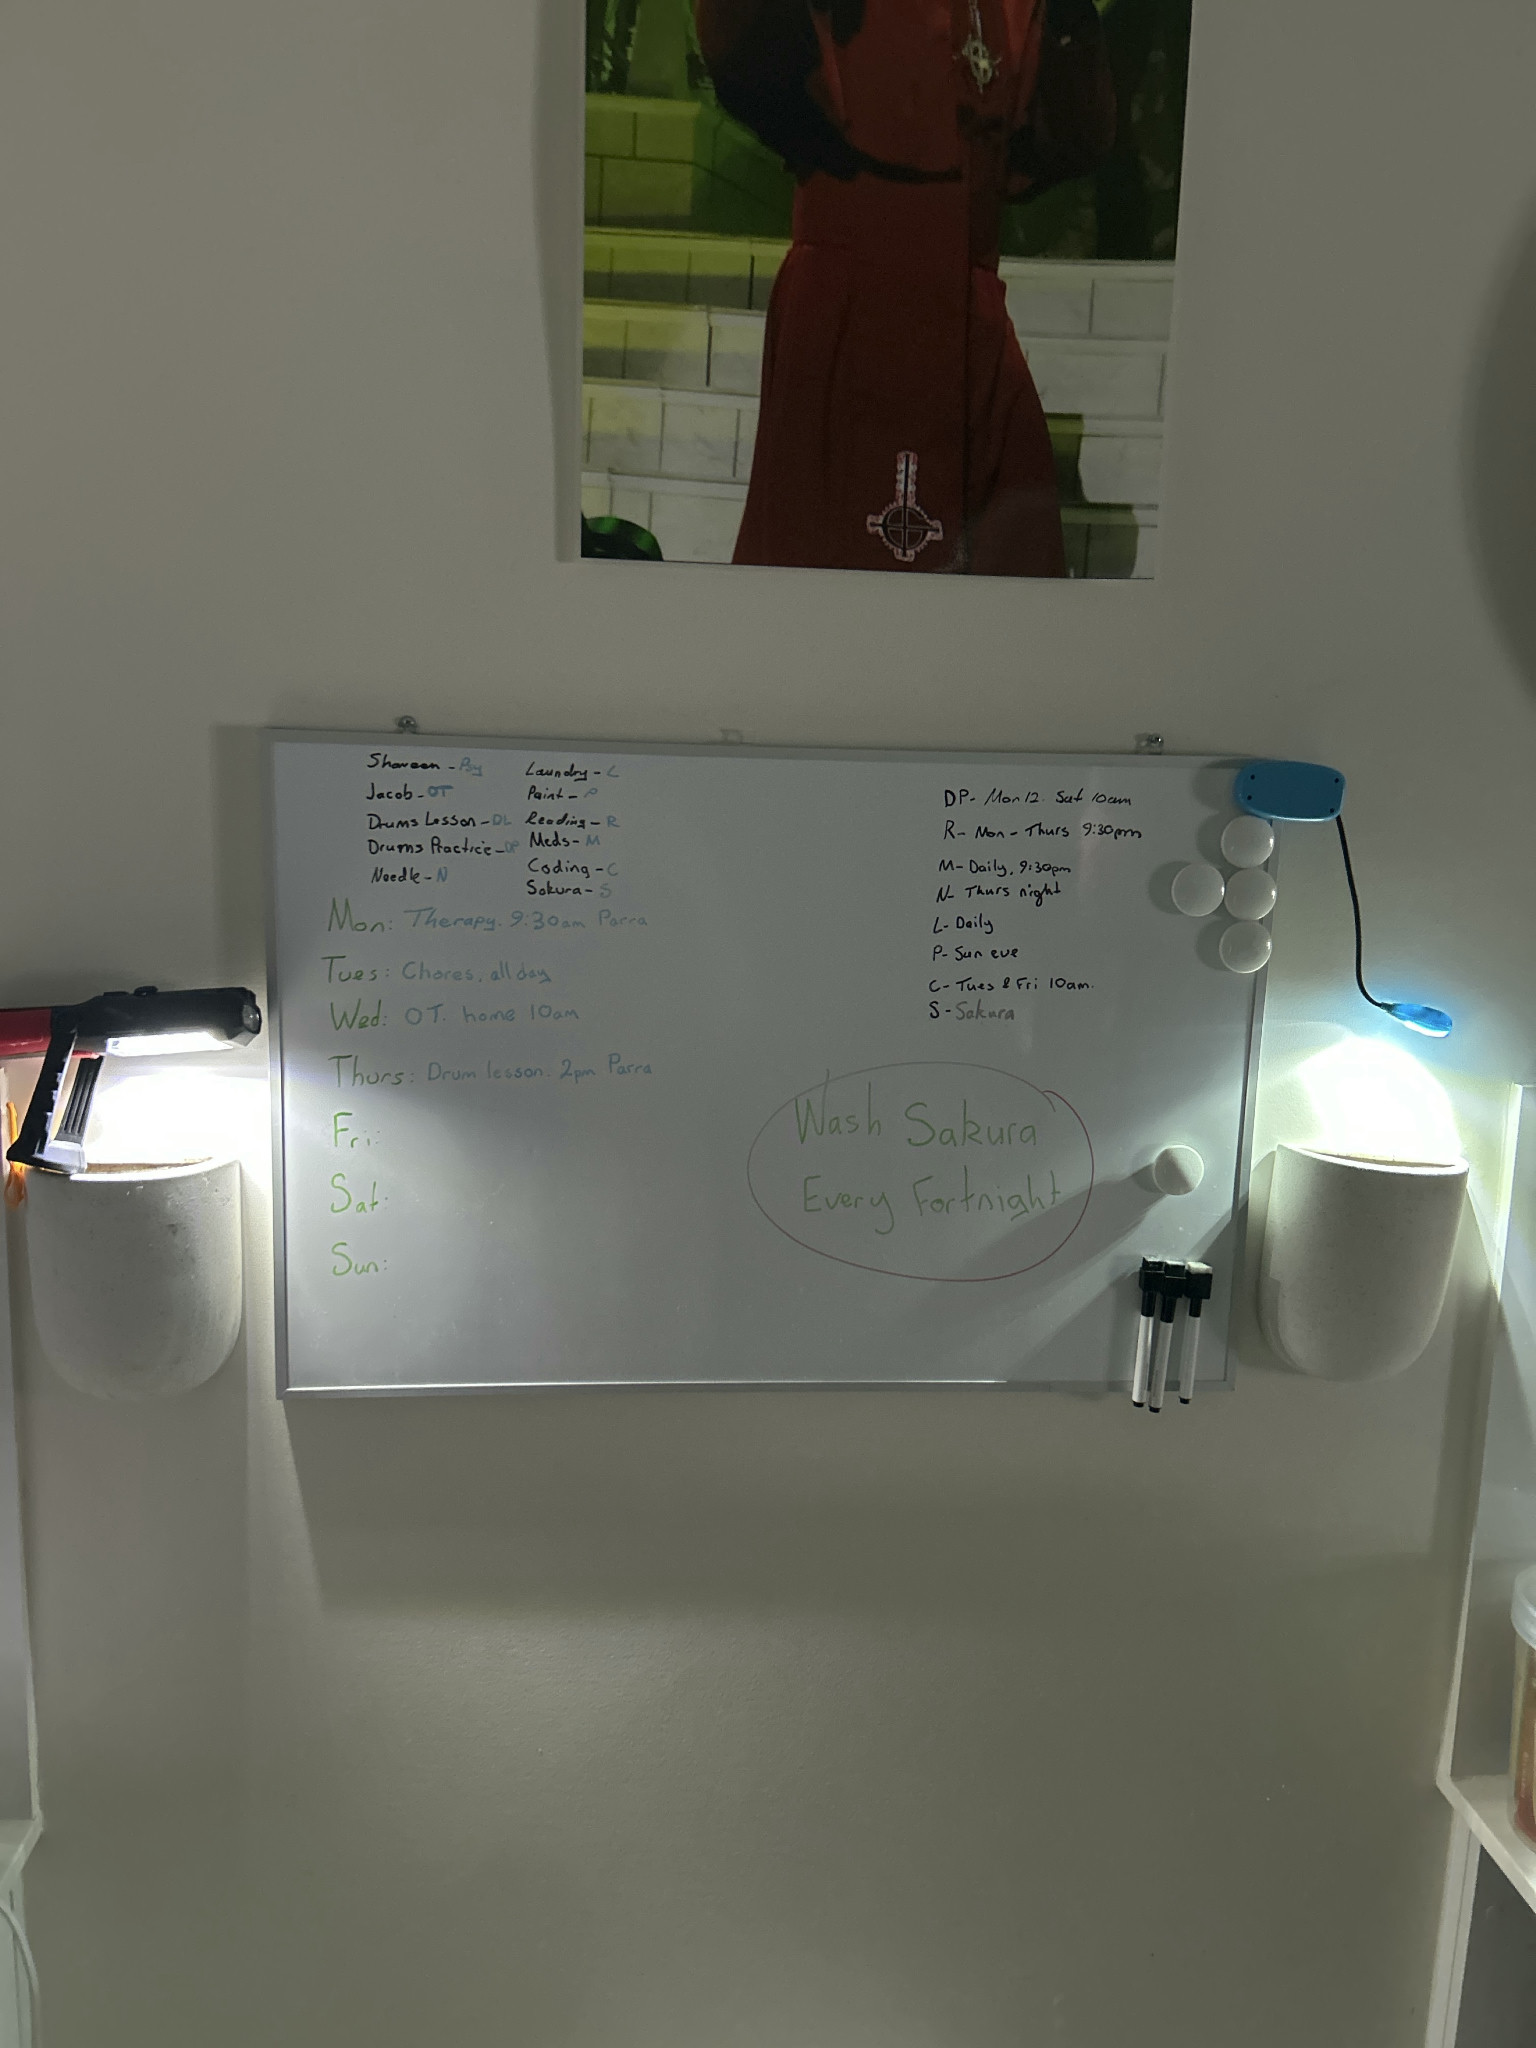 Shareen - Psy
Jacob - OT
Drums Lesson - DL
Drums Practice - DP
Needle - N
Laundry - L
Paint - P
Reading - R
Meds - M
Coding - C
Sakura - S
Mon: Therapy. 9:30am Parra
Tues: Chores, all day
Wed: OT. home 10am
Thurs: Drum lesson. 2pm Parra
Fri:
Sat:
Sun:
DP- Mon 12. Sat 10am
R- Mon - Thurs 9:30pm
M- Daily, 9:30pm
N- Thurs night
L- Daily
P- Sun eve
C- Tues & Fri 10am.
S- Sakura
Wash Sakura
Every Fortnight